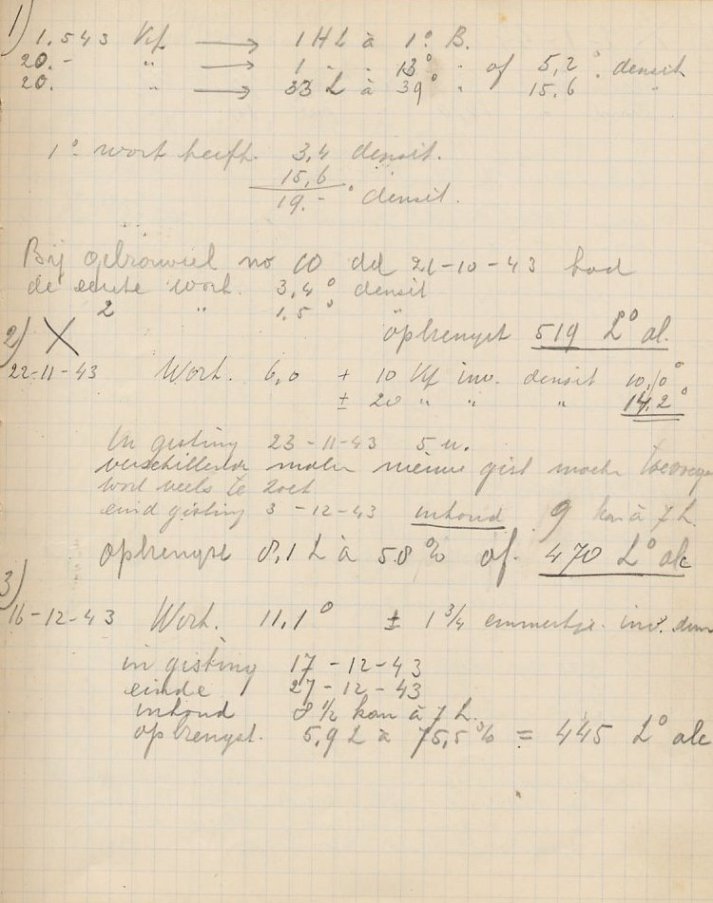 1) 1.543 Kg. → 1 HL à 1° B.
20.- " → 1 " " 13° " of 5,2° densit.
20. " → 33 L à 39° " 15.6 "
1° wort heeft. 3,4 densit.
15,6
19.-° densit.
Bij gebrouwsel no 10 dd 21-10-43 had
de eerste wort. 3,4° densit
2 " 1.5° "
opbrengst 519 L° al.
2) X
22-11-43 Wort. 6,0 + 10 Kg inv. densit 10,10°
± 20 " " " 14.2°
In gisting 23-11-43 5 u.
verschillende malen nieuwe gist moeten toevoegen
wort veels te zoet
eind gisting 3-12-43 inhoud 9 kan à 7 L.
opbrengst 8,1 L à 58 % of. 470 L° alc
3)
16-12-43 Wort. 11,1° ± 1 3/4 emmertje inv.
in gisting 17-12-43
einde 27-12-43
inhoud 8 1/2 kan à 7 L.
opbrengst. 5,9 L à 75,5 % = 445 L° alc